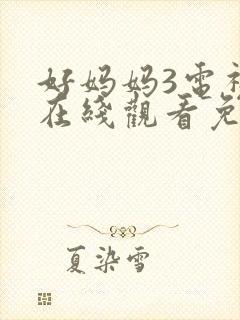 好妈妈3電
在綫觀看免
夏染雪